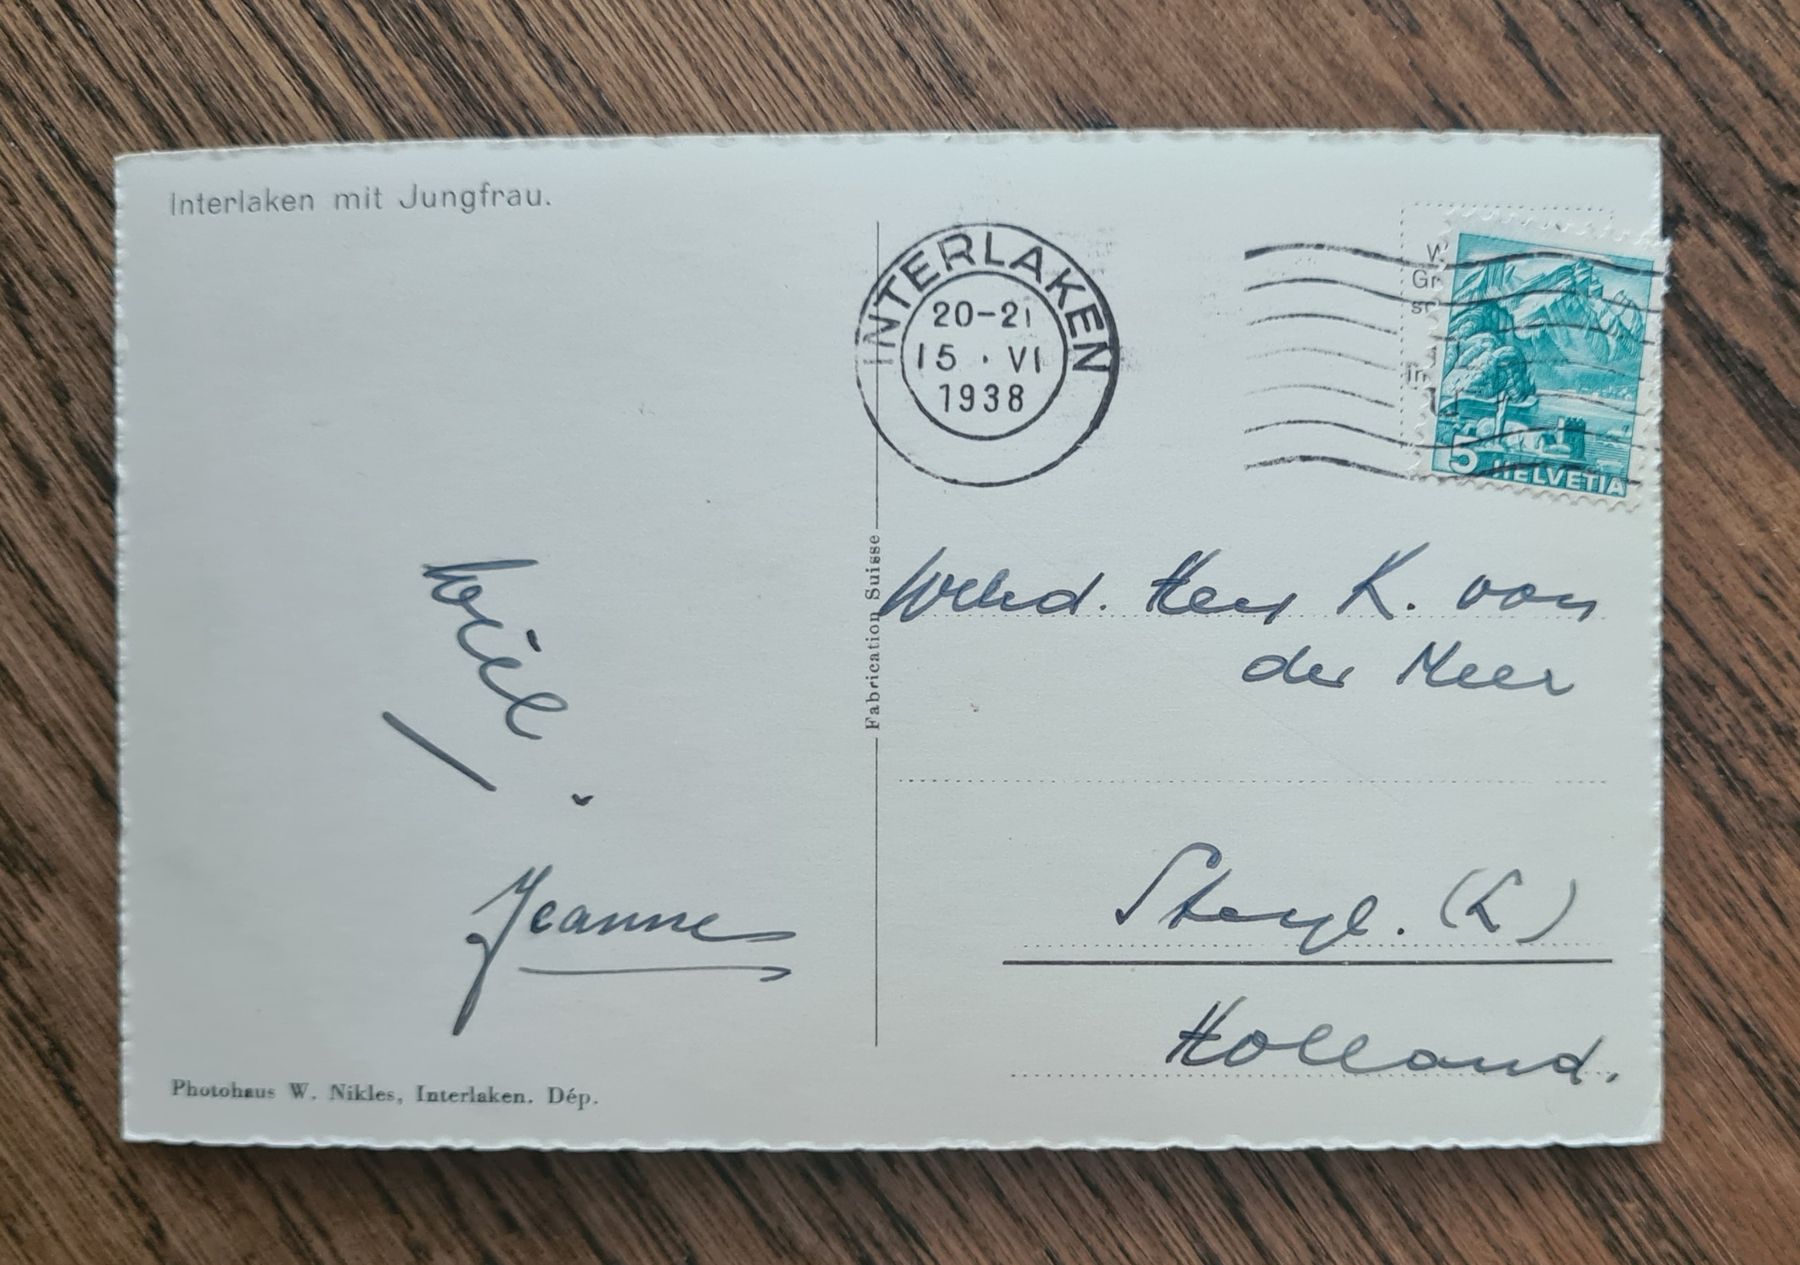 Interlaken mit Jungfrau.
INTERLAKEN
20-21
15 · VI
1938
5 HELVETIA
Fabrication Suisse
Heer K. van
der Meer
Steyl. (L)
Holland.
Jeanne
Photohaus W. Nikles, Interlaken. Dép.